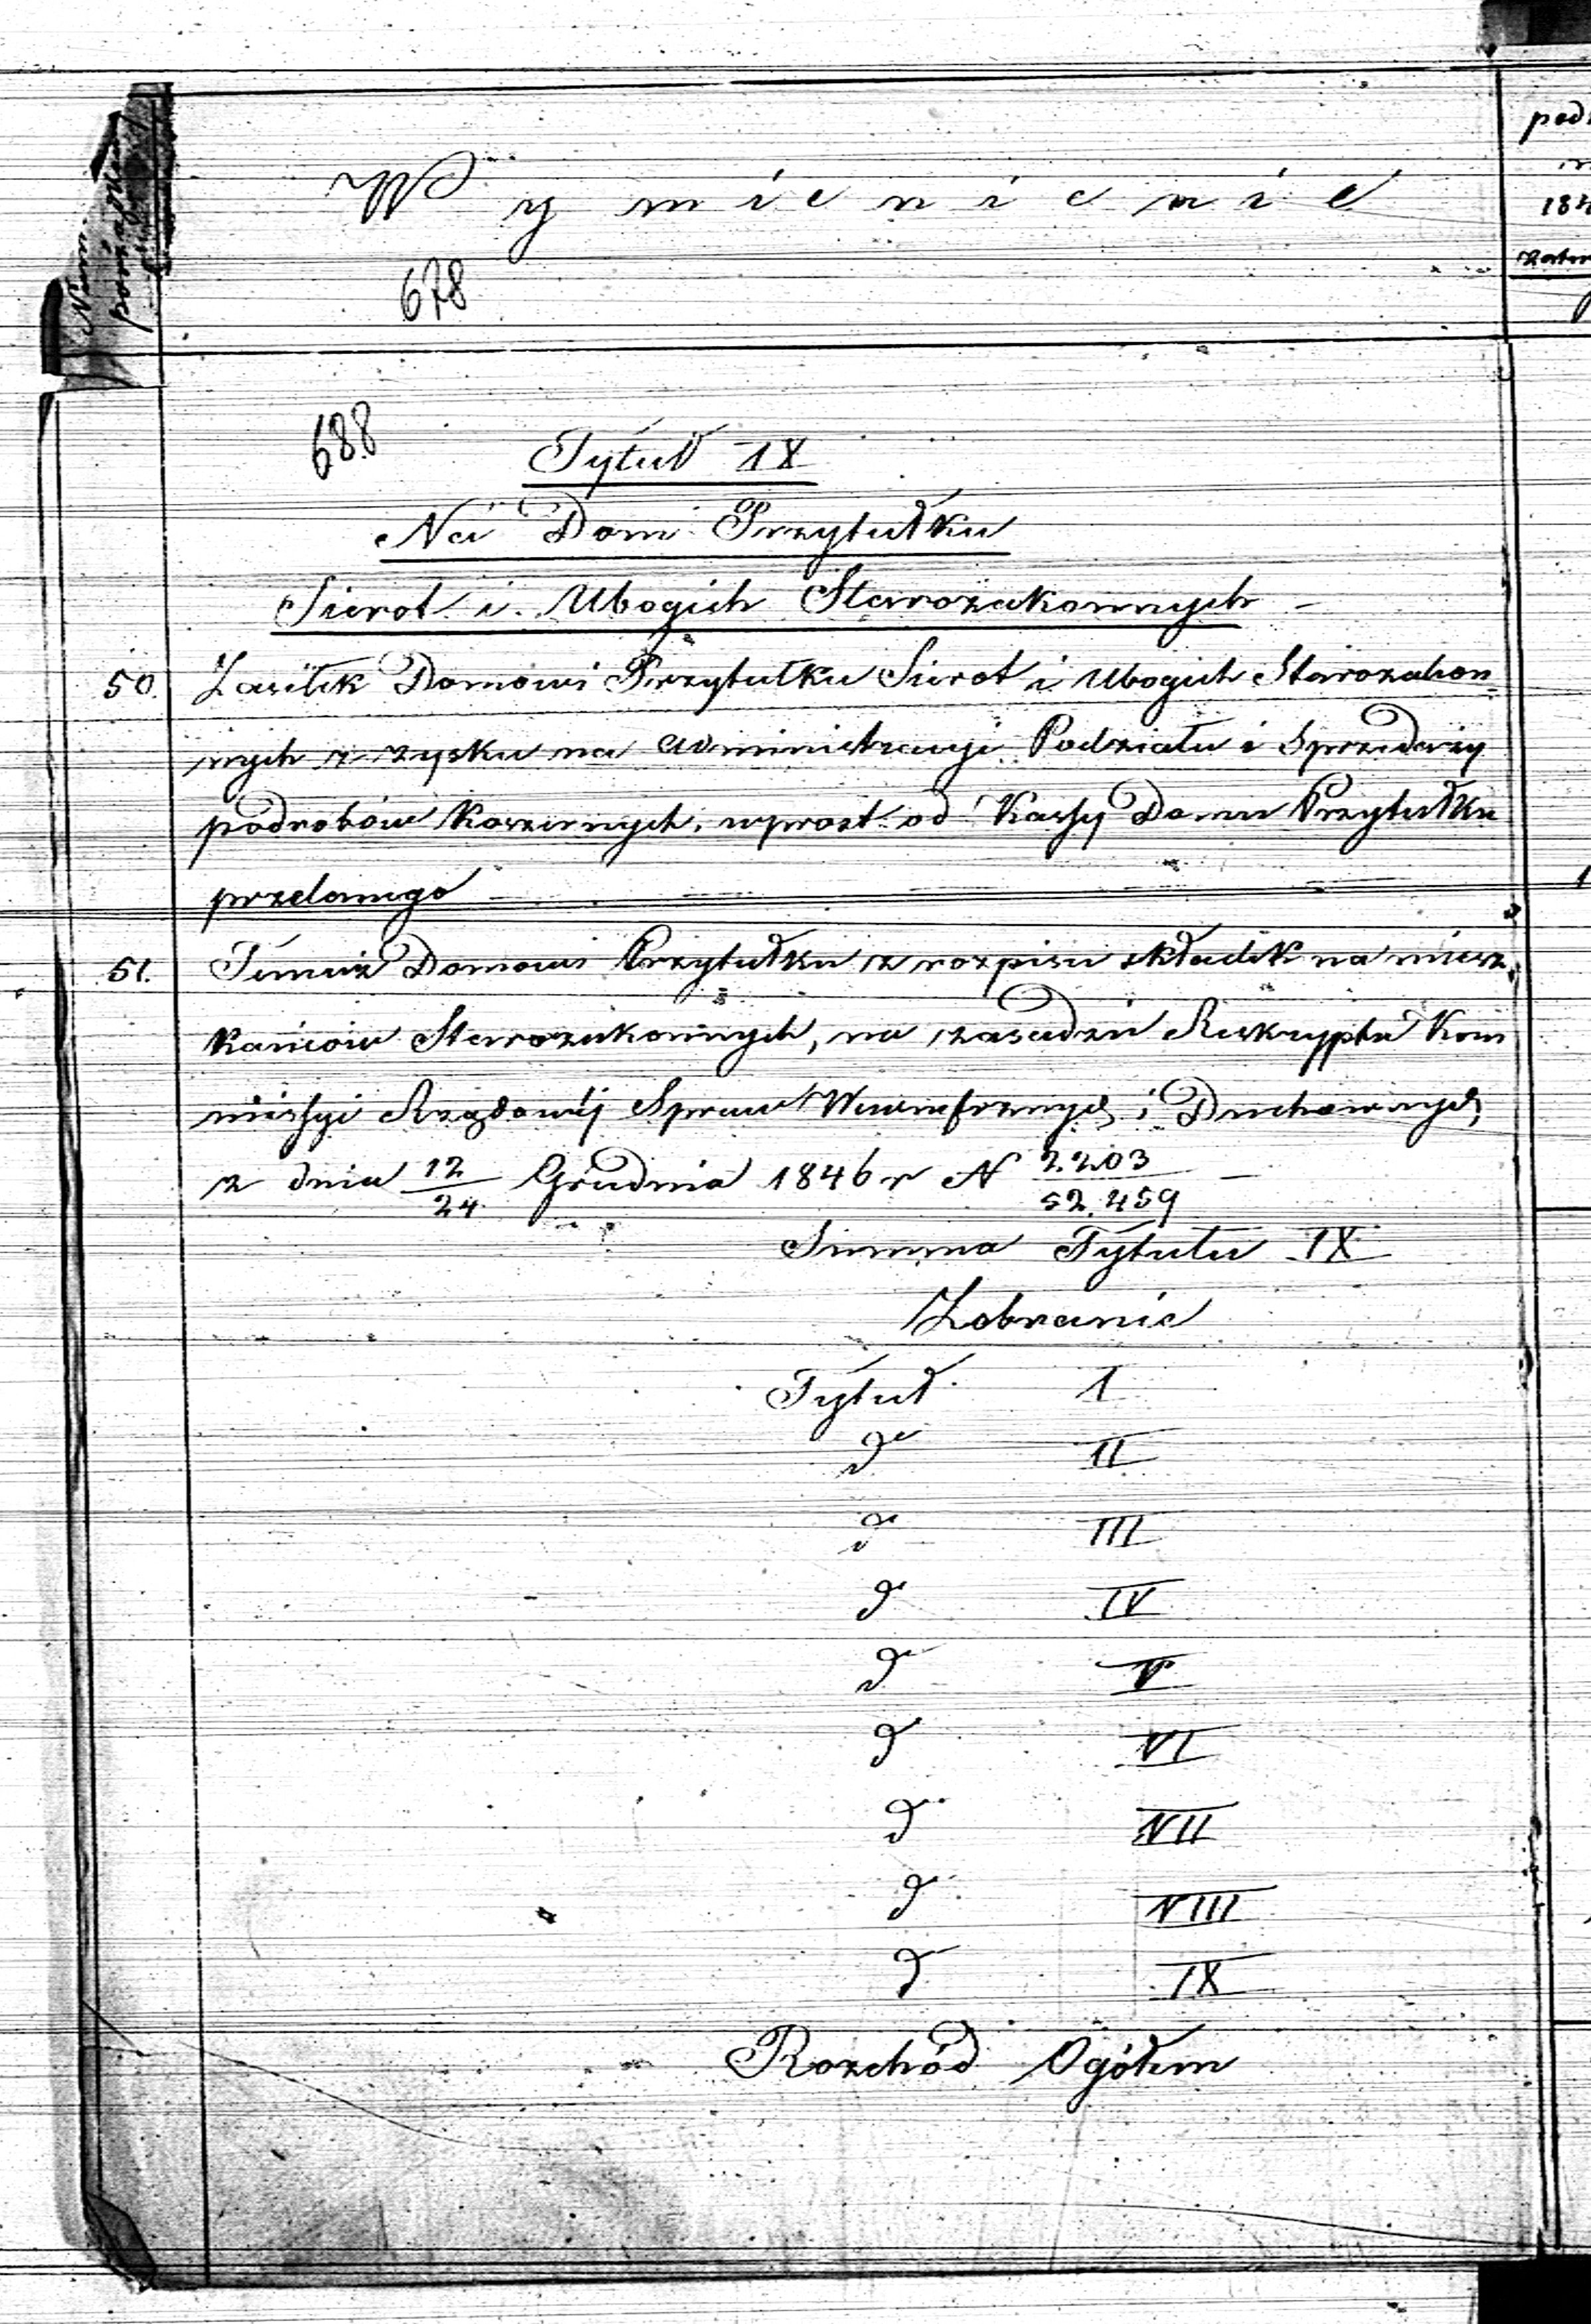 Wymienienie
678
688
Tytuł IX
Na Dom Przytułku
Sierot i Ubogich Starozakonnych
50. Zasiłek Domowi Przytułku Sierot i Ubogich Starozakon=
nych z zysku na administracyi Podziału i Sprzedaży
podrobów koszernych, wprost od Kassy Domu Przytułku
przelanego
51. Temuż Domowi Przytułku z rozpisu składek na miesz
kańców Starozakonnych, na zasadzie Reskryptu Kom
missyi Rządowéj Spraw Wewnętrznych i Duchownych
z dnia 12/24 Grudnia 1846 r N 2.203/52.459 —
Summa Tytułu IX
Zebranie
Tytuł I
do II
do III
do IV
do V
do VI
do VII
do VIII
do IX
Rozchód Ogółem